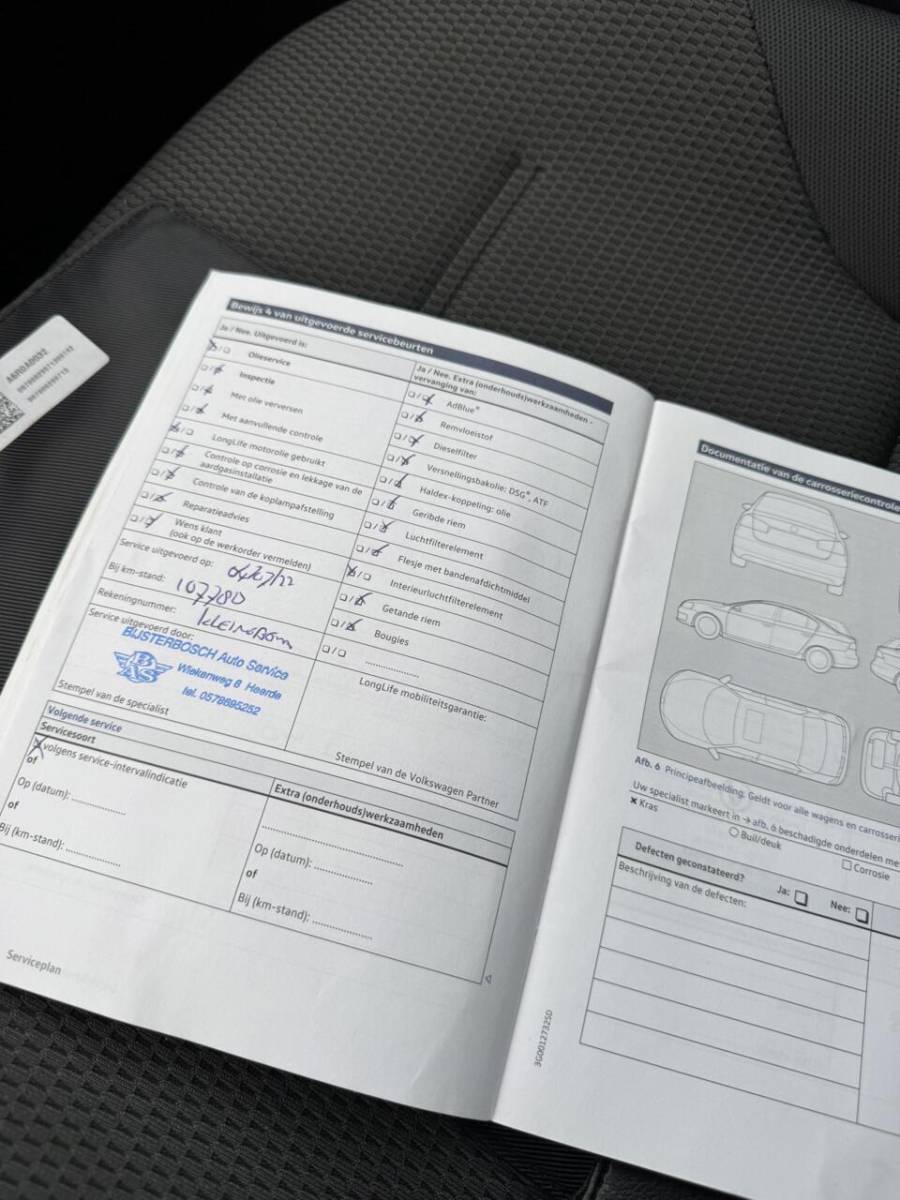 A6R0AD032
Bewijs 4 van uitgevoerde servicebeurten
Ja / Nee. Uitgevoerd is:
Olieservice
Inspectie
Met olie verversen
Met aanvullende controle
LongLife motorolie gebruikt
Controle op corrosie en lekkage van de
aardgasinstallatie
Controle van de koplampafstelling
Reparatieadvies
Wens klant
(ook op de werkorder vermelden)
Service uitgevoerd op:
Bij km-stand: 107780
Rekeningnummer:
Service uitgevoerd door:
BIJSTERBOSCH Auto Service
BAS
Wiekenweg 8 Heerde
tel. 0578695252
Stempel van de specialist
Ja / Nee. Extra (onderhouds)werkzaamheden -
vervanging van:
AdBlue®
Remvloeistof
Dieselfilter
Versnellingsbakolie: DSG®, ATF
Haldex-koppeling: olie
Geribde riem
Luchtfilterelement
Flesje met bandenafdichtmiddel
Interieurluchtfilterelement
Getande riem
Bougies
LongLife mobiliteitsgarantie:
Stempel van de Volkswagen Partner
Volgende service
Servicesoort
volgens service-intervalindicatie
of
Op (datum):
of
Bij (km-stand):
Extra (onderhouds)werkzaamheden
Op (datum):
of
Bij (km-stand):
Serviceplan
3G0012732SD
Documentatie van de carrosseriecontrole
Afb. 6 Principeafbeelding: Geldt voor alle wagens en
Uw specialist markeert in → afb. 6 beschadigde onderdelen
Kras
Buil/deuk
Corrosie
Defecten geconstateerd?
Ja:
Nee:
Beschrijving van de defecten: